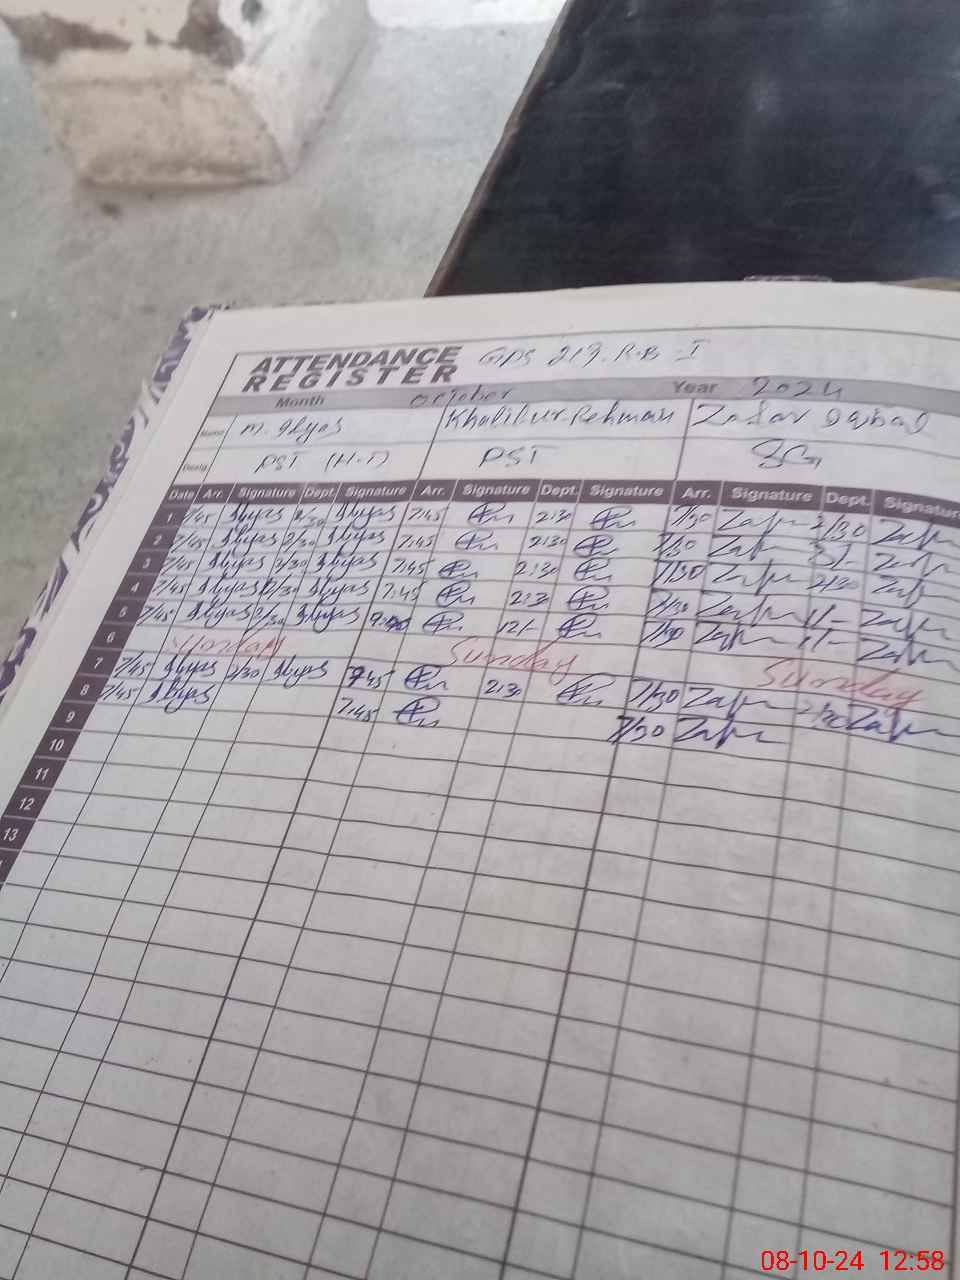 ATTENDANCE REGISTER GPS 219.R.B-I
Month October Year 2024
Name M. Ilyas Khalilur-Rehman Zafar Iqbal
Desig. PST (H.T) PST SG
Date Arr. Signature Dept. Signature Arr. Signature Dept. Signature Arr. Signature Dept. Signature
1 7/45 Ilyas 2/30 Ilyas 7:45 2:30 7/30 Zafar 2/30 Zafar
2 7/45 Ilyas 2/30 Ilyas 7:45 2:30 7/30 Zafar Zafar
3 7/45 Ilyas 2/30 Ilyas 7:45 2:30 7/30 Zafar 2/30 Zafar
4 7/45 Ilyas 2/30 Ilyas 7:45 2:30 7/30 Zafar Zafar
5 7/45 Ilyas Ilyas 12/- 7/30 Zafar Zafar
6 Sunday Sunday
7 7/45 Ilyas 2/30 Ilyas 7:45 2:30 7/30 Zafar 2/30 Zafar
8 7/45 Ilyas 7:45 7/30 Zafar
9
10
11
12
13
08-10-24 12:58